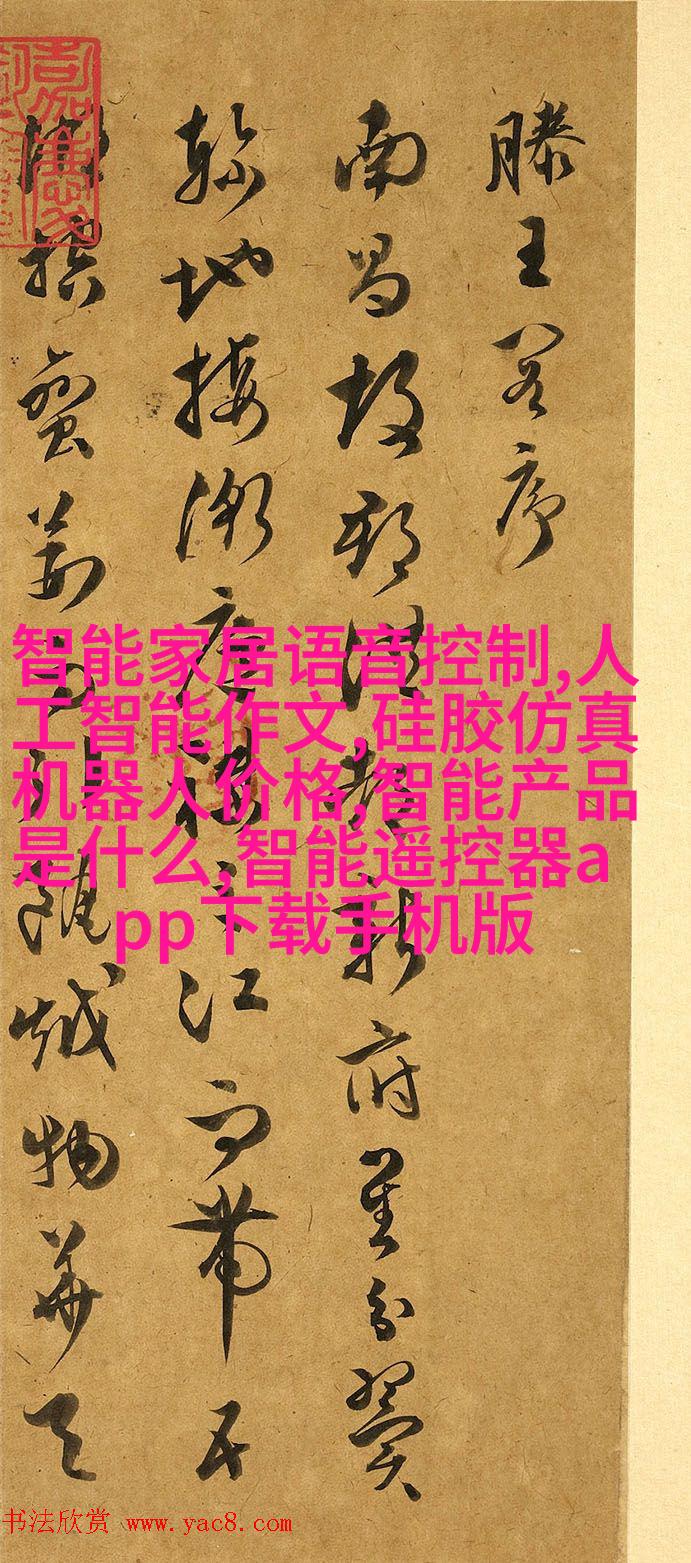 滕王閣序
南昌故郡洪都新府星分翼
軫地接衡廬襟三江而帶五
湖控蠻荊而引甌越物華天
智能家居语音控制,人
工智能作文,硅胶仿真
机器人价格,智能产品
是什么,智能遥控器a
pp下载手机版
书法欣赏 www.yac8.com